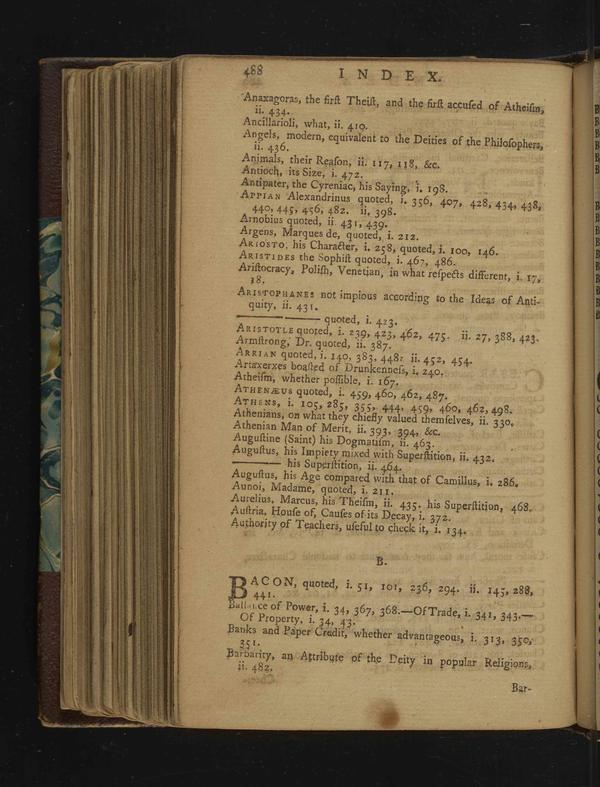 488 INDEX.
Anaxagoras, the firſt Theiſt, and the firſt accuſed of Atheiſm,
ii. 434.
Ancillarioli, what, ii. 419.
Angels, modern, equivalent to the Deities of the Philoſophers,
ii. 436.
Animals, their Reaſon, ii. 117, 118, &c.
Antioch, its Size, i. 472.
Antipater, the Cyreniac, his Saying, i. 198.
APPIAN Alexandrinus quoted, i. 356, 407, 428, 434, 438,
440, 445, 456, 482. ii. 398.
Arnobius quoted, ii 431, 439.
Argens, Marques de, quoted, i. 212.
ARIOSTO, his Character, i. 258, quoted, i. 100, 146.
ARISTIDES the Sophiſt quoted, i. 467, 486.
Ariſtocracy, Poliſh, Venetian, in what reſpects different, i. 17,
18.
ARISTOPHANES not impious according to the Ideas of Anti-
quity, ii. 431.
——— ——— quoted, i. 423.
ARISTOTLE quoted, i. 239, 423, 462, 475. ii. 27, 388, 423.
Armſtrong, Dr. quoted, ii. 387.
ARRIAN quoted, i. 140, 383, 448. ii. 452, 454.
Artaxerxes boaſted of Drunkenneſs, i. 240.
Atheiſm, whether poſſible, i. 167.
ATHENÆUS quoted, i. 459, 460, 462, 487.
ATHENS, i. 105, 285, 355, 444, 459, 460, 462, 498.
Athenians, on what they chiefly valued themſelves, ii. 330.
Athenian Man of Merit, ii. 393, 394, &c.
Auguſtine (Saint) his Dogmatiſm, ii. 463.
Auguſtus, his Impiety mixed with Superſtition, ii. 432.
——— his Superſtition, ii. 464.
Auguſtus, his Age compared with that of Camillus, i. 286.
Aunoi, Madame, quoted, i. 211.
Aurelius, Marcus, his Theiſm, ii. 435. his Superſtition, 468.
Auſtria, Houſe of, Cauſes of its Decay, i. 372.
Authority of Teachers, uſeful to check it, i. 134.
B.
BACON, quoted, i. 51, 101, 236, 294. ii. 145, 288,
441.
Ballance of Power, i. 34, 367, 368.—Of Trade, i. 341, 343.—
Of Property, i. 34, 43.
Banks and Paper Credit, whether advantageous, i. 313, 350,
351.
Barbarity, an Attribute of the Deity in popular Religions,
ii. 482.
Bar-